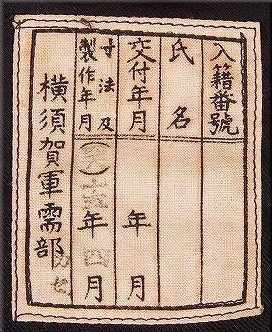 入籍番號
氏名
交付年月
年 月
寸法及製作年月
年 四 月
横須賀軍需部